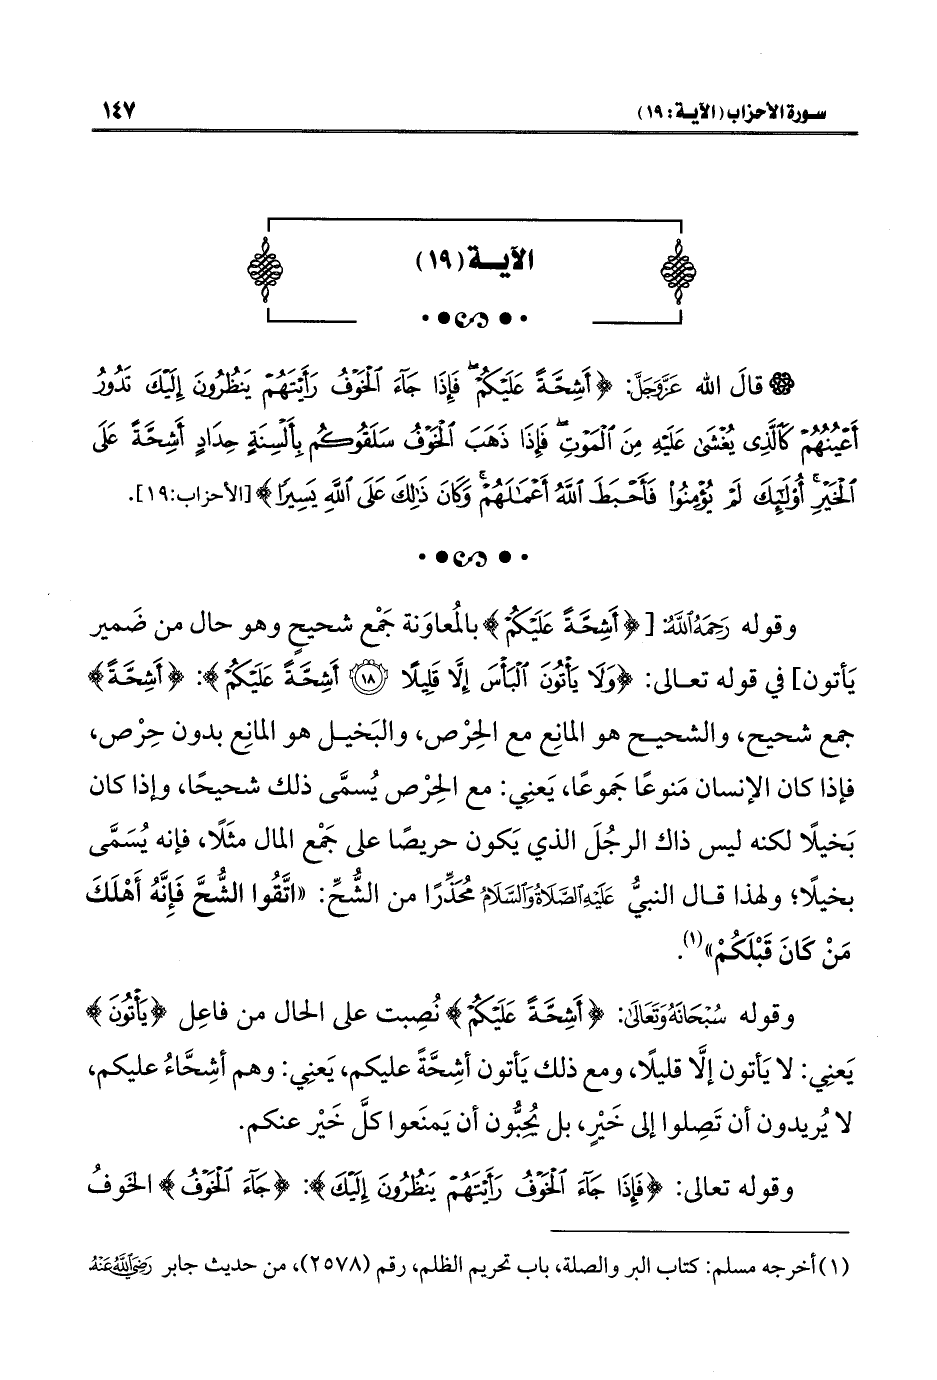 سورة الأحزاب (الآية: ١٩)
١٤٧
الآيـــة (١٩)
قالَ الله عَزَّوَجَلَّ: ﴿أَشِحَّةً عَلَيْكُمْ ۖ فَإِذَا جَآءَ ٱلْخَوْفُ رَأَيْتَهُمْ يَنظُرُونَ إِلَيْكَ تَدُورُ
أَعْيُنُهُمْ كَٱلَّذِى يُغْشَىٰ عَلَيْهِ مِنَ ٱلْمَوْتِ ۖ فَإِذَا ذَهَبَ ٱلْخَوْفُ سَلَقُوكُم بِأَلْسِنَةٍ حِدَادٍ أَشِحَّةً عَلَى
ٱلْخَيْرِ ۚ أُو۟لَـٰٓئِكَ لَمْ يُؤْمِنُوا۟ فَأَحْبَطَ ٱللَّهُ أَعْمَـٰلَهُمْ ۚ وَكَانَ ذَٰلِكَ عَلَى ٱللَّهِ يَسِيرًا﴾ [الأحزاب:١٩].
وقوله رَحِمَهُ ٱللَّهُ: [﴿أَشِحَّةً عَلَيْكُمْ﴾ بالمُعاوَنة جَمْع شحيحٍ وهو حال من ضَمير
يَأتون] في قوله تعـالى: ﴿وَلَا يَأْتُونَ ٱلْبَأْسَ إِلَّا قَلِيلًا ﴿١٨﴾ أَشِحَّةً عَلَيْكُمْ﴾: ﴿أَشِحَّةً﴾
جمع شحيح، والشحيـح هو المانِع مع الحِرْص، والبَخيـل هو المانِع بدون حِرْص،
فإذا كان الإنسان مَنوعًا جَموعًا، يَعنِي: مع الحِرْص يُسمَّى ذلك شحيحًا، وإذا كان
بَخيلًا لكنه ليس ذاك الرجُلَ الذي يَكون حريصًا على جَمْع المال مثَلًا، فإنه يُسَمَّى
بخيلًا؛ ولهذا قـال النبيُّ عَلَيْهِ ٱلصَّلَاةُ وَٱلسَّلَامُ مُحَذِّرًا من الشُّحِّ: «اتَّقُوا الشُّحَّ فَإِنَّهُ أَهْلَكَ
مَنْ كَانَ قَبْلَكُمْ»(١).
وقوله سُبْحَانَهُ وَتَعَالَىٰ: ﴿أَشِحَّةً عَلَيْكُمْ﴾ نُصِبت على الحال من فاعِل ﴿يَأْتُونَ﴾
يَعنِي: لا يَأتون إلَّا قليلًا، ومع ذلك يَأتون أشِحَّةً عليكم، يَعنِي: وهم أشِحَّاءُ عليكم،
لا يُريدون أن تَصِلوا إلى خَيْرٍ، بل يُحِبُّون أن يَمنَعوا كلَّ خَيْر عنكم.
وقوله تعالى: ﴿فَإِذَا جَآءَ ٱلْخَوْفُ رَأَيْتَهُمْ يَنظُرُونَ إِلَيْكَ﴾: ﴿جَآءَ ٱلْخَوْفُ﴾ الخَوفُ
(١) أخرجه مسلم: كتاب البر والصلة، باب تحريم الظلم، رقم (٢٥٧٨)، من حديث جابر رَضِيَ ٱللَّهُ عَنْهُ